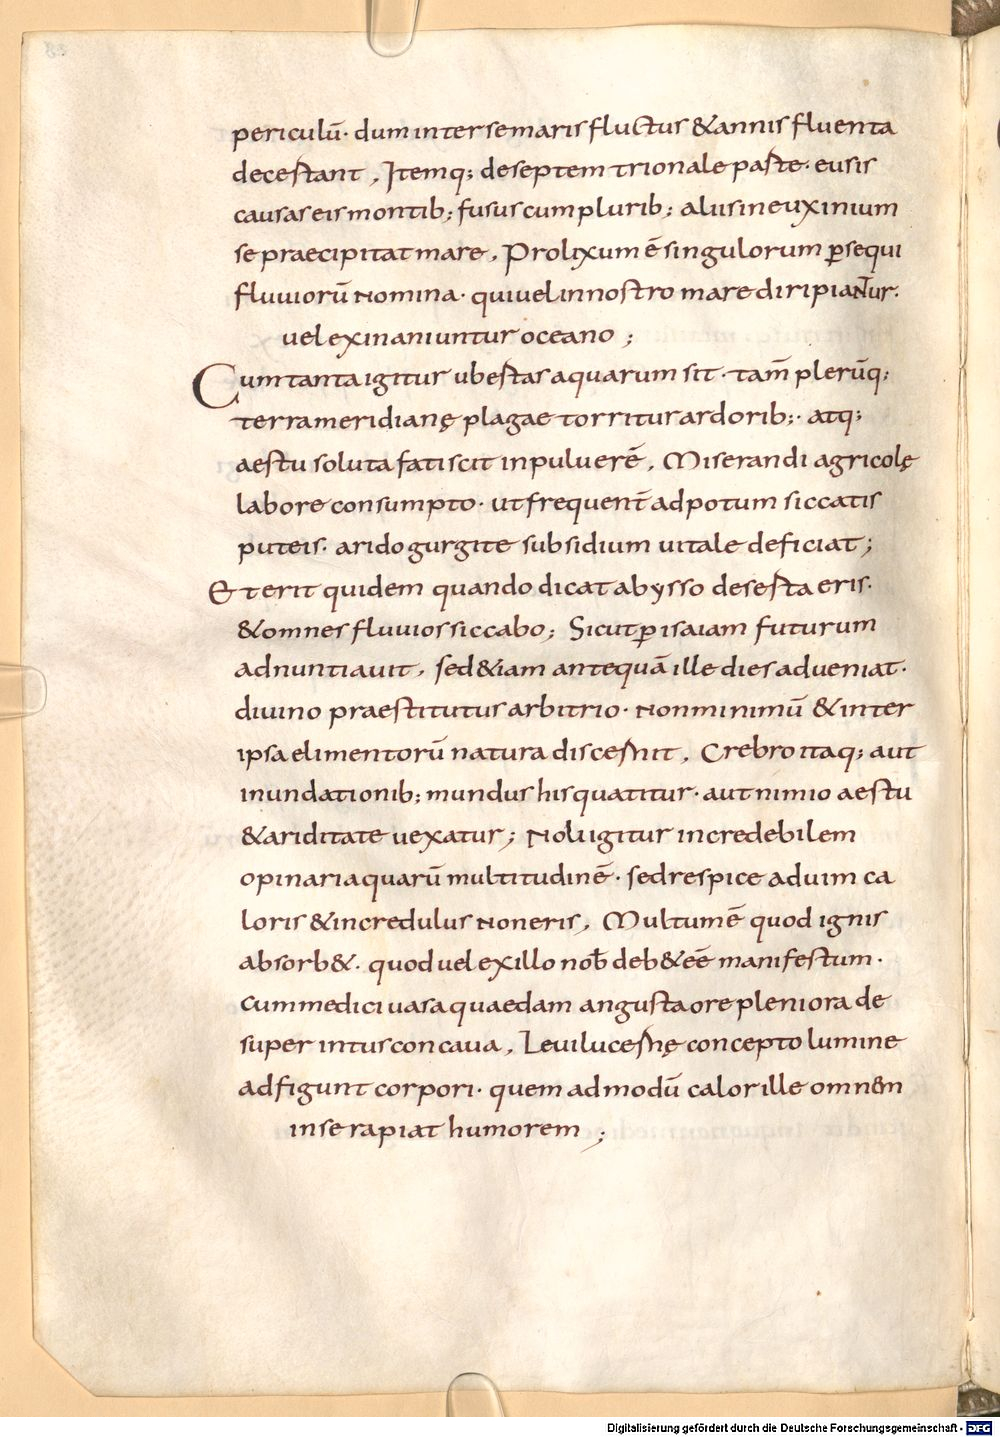 periculū· dum inter se maris fluctus & annis fluenta
decertant, Itemq; de septemtrionale parte· eusis
causaseis montib; fusus cum plurib; aliis in euxinium
se praecipitat mare, Prolixum ē singulorum ꝑsequi
fluuiorū nomina· qui uel in nostro mare diripiantur·
uel exinaniuntur oceano ;
Cum tanta igitur ubertas aquarum sit· tam̄ plerūq;
terra meridianę plagae torritur ardorib;· atq;
aestu soluta fatiscit in puluerē, Miserandi agricolę
labore consumpto· ut frequent̄ ad potum siccatis
puteis· arido gurgite subsidium uitale deficiat ;
Et erit quidem quando dicat abysso deserta eris·
& omnes fluuios siccabo ; Sicut ꝑ isaiam futurum
adnuntiauit, sed &iam antequā ille dies adueniat·
diuino praestitutus arbitrio· non minimū & inter
ipsa elimentorū natura discernit, Crebro itaq; aut
inundationib; mundus his quatitur· aut nimio aestu
& ariditate uexatur ; Noli igitur incredebilem
opinari aquarū multitudinē· sed respice ad uim ca
loris & incredulus non eris, Multum ē quod ignis
absorb&· quod uel ex illo nob̄ deb& eē manifestum·
cum medici uasa quaedam angusta ore pleniora de
super intus concaua, Leui lucernę concepto lumine
adfigunt corpori· quemadmodū calor ille omnem
in se rapiat humorem ;
Digitalisierung gefördert durch die Deutsche Forschungsgemeinschaft - DFG